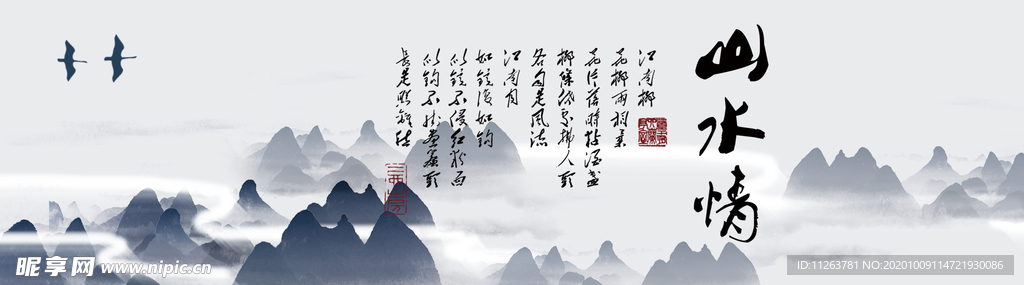 山水情
江南柳
花柳兩相柔
花片落時粘酒盞
柳條低處拂人頭
各自是風流
江南月
如鏡復如鈎
似鏡不侵紅粉面
似鈎不掛畫簾頭
長是照離愁
昵享网 www.nipic.cn
ID:11263781 NO:20201009114721930086